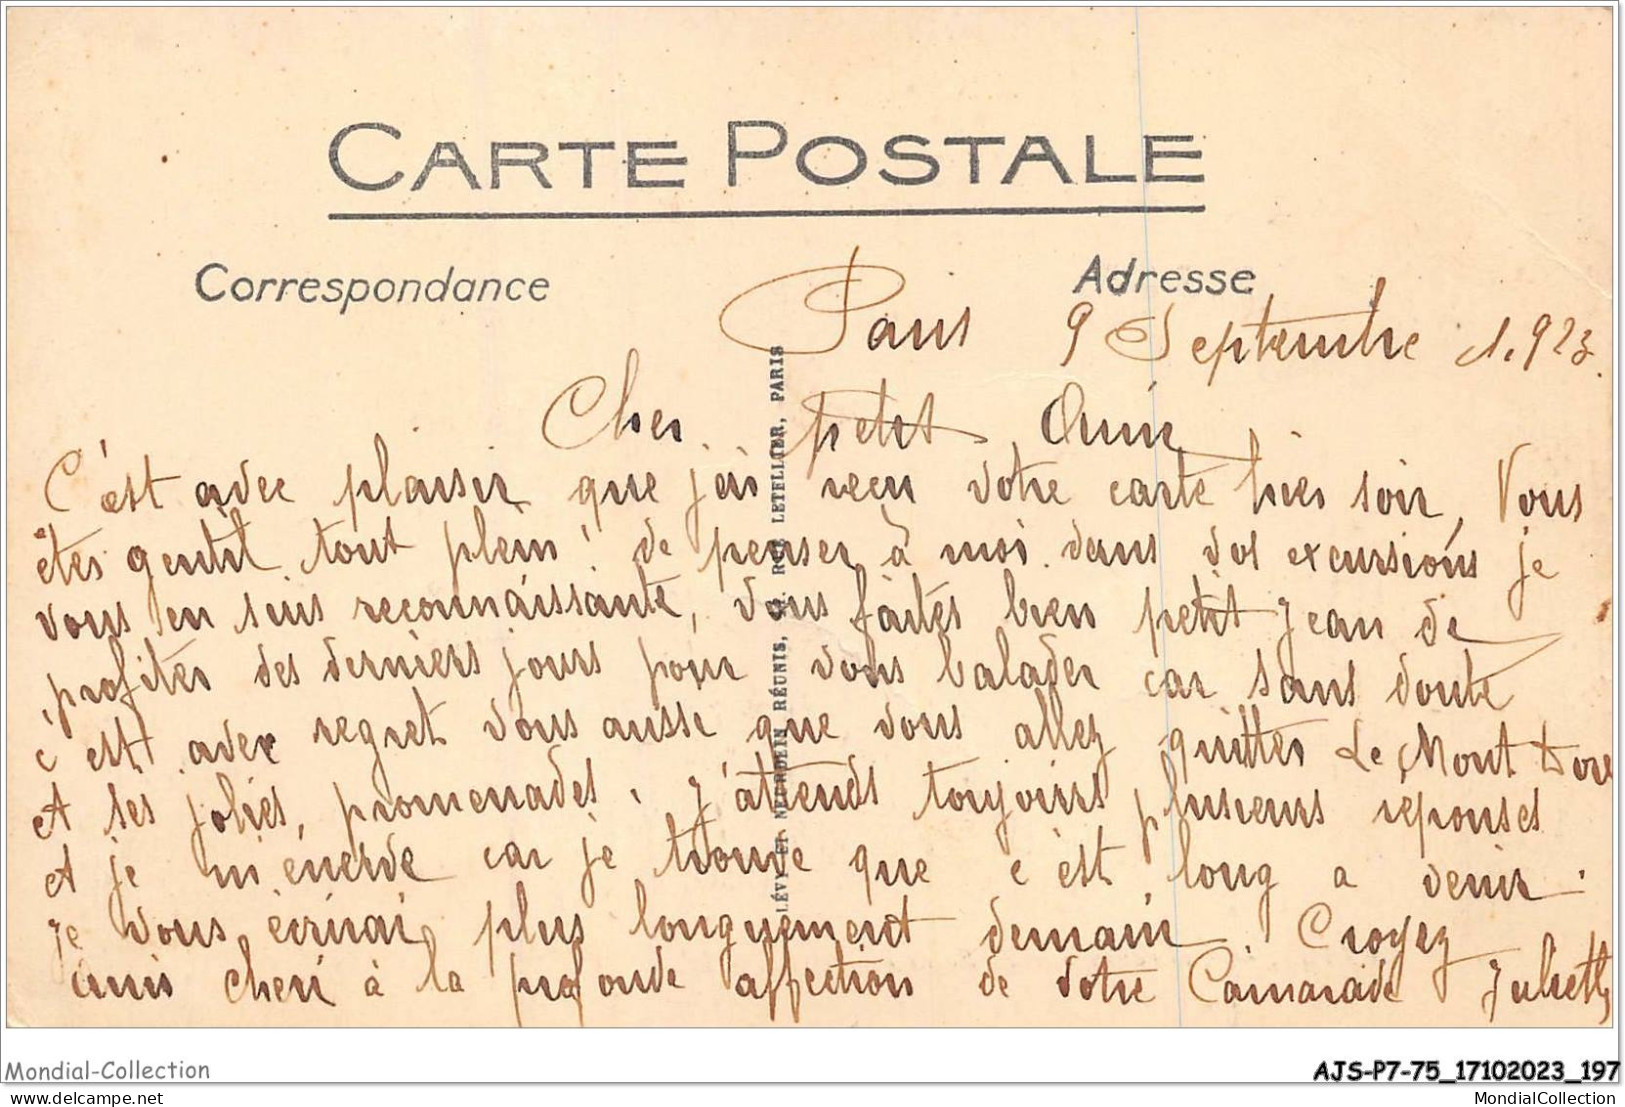 CARTE POSTALE
Correspondance
Adresse
Paris 9 Septembre 1.923.
Cher petit Ami
C'est avec plaisir que j'ai recu votre carte hier soir, Vous
êtes gentil tout plein de penser à moi dans vos excursions je
vous en suis reconnaissante, vous faites bien petit Jean de
profiter des derniers jours pour vous balader car sans doute
c'est avec regret vous aussi que vous allez quitter Le Mont Dore
et ses jolies promenades. J'attends toujours plusieurs réponses
et je m'énerve car je trouve que c'est long a venir.
Je vous écrirai plus longuement demain. Croyez
amis cheri à la profonde affection de votre Camarade Juliette
LÉVY ET NEURDEIN RÉUNIS, RUE LETELLIER, PARIS
Mondial-Collection
AJS-P7-75_17102023_197
delcampe.net
MondialCollection